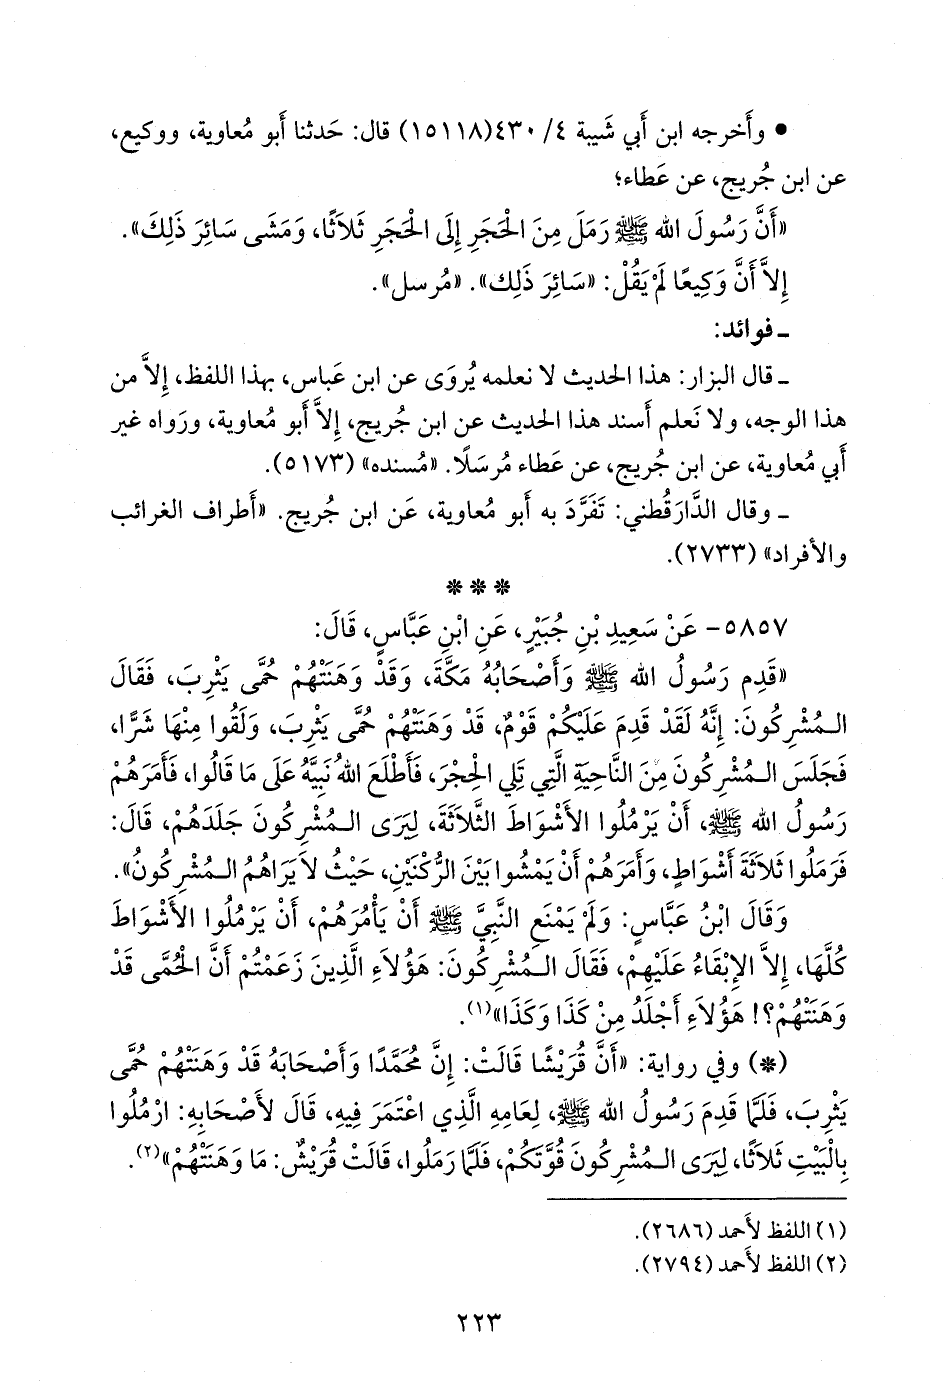 • وأَخرجه ابن أَبي شَيبة ٤/ ٤٣٠(١٥١١٨) قال: حَدثنا أَبو مُعاوية، ووكيع،
عن ابن جُريج، عن عَطاء؛
«أَنَّ رَسُولَ الله ﷺ رَمَلَ مِنَ الْحَجَرِ إِلَى الْحَجَرِ ثَلاَثًا، وَمَشَى سَائِرَ ذَلِكَ».
إِلاَّ أَنَّ وَكِيعًا لَمْ يَقُلْ: «سَائِرَ ذَلِكَ». «مُرسل».
ـ فوائد:
ـ قال البزار: هذا الحديث لا نعلمه يُروَى عن ابن عَباس، بهذا اللفظ، إِلاَّ من
هذا الوجه، ولا نَعلم أَسند هذا الحديث عن ابن جُريج، إِلاَّ أَبو مُعاوية، ورَواه غير
أَبي مُعاوية، عن ابن جُريج، عن عَطاء مُرسَلًا. «مُسنده» (٥١٧٣).
ـ وقال الدَّارَقُطني: تَفَرَّدَ به أَبو مُعاوية، عَن ابن جُريج. «أَطراف الغرائب
والأفراد» (٢٧٣٣).
***
٥٨٥٧- عَنْ سَعِيدِ بْنِ جُبَيْرٍ، عَنِ ابْنِ عَبَّاسٍ، قَالَ:
«قَدِمَ رَسُولُ الله ﷺ وَأَصْحَابُهُ مَكَّةَ، وَقَدْ وَهَنَتْهُمْ حُمَّى يَثْرِبَ، فَقَالَ
الـمُشْرِكُونَ: إِنَّهُ لَقَدْ قَدِمَ عَلَيْكُمْ قَوْمٌ، قَدْ وَهَنَتْهُمْ حُمَّى يَثْرِبَ، وَلَقُوا مِنْهَا شَرًّا،
فَجَلَسَ الـمُشْرِكُونَ مِنَ النَّاحِيَةِ الَّتِي تَلِي الْحِجْرَ، فَأَطْلَعَ اللهُ نَبِيَّهُ عَلَى مَا قَالُوا، فَأَمَرَهُمْ
رَسُولُ الله ﷺ، أَنْ يَرْمُلُوا الأَشْوَاطَ الثَّلاَثَةَ، لِيَرَى الـمُشْرِكُونَ جَلَدَهُمْ، قَالَ:
فَرَمَلُوا ثَلاَثَةَ أَشْوَاطٍ، وَأَمَرَهُمْ أَنْ يَمْشُوا بَيْنَ الرُّكْنَيْنِ، حَيْثُ لاَ يَرَاهُمُ الـمُشْرِكُونُ».
وَقَالَ ابْنُ عَبَّاسٍ: وَلَمْ يَمْنَعِ النَّبِيَّ ﷺ أَنْ يَأْمُرَهُمْ، أَنْ يَرْمُلُوا الأَشْوَاطَ
كُلَّهَا، إِلاَّ الإِبْقَاءُ عَلَيْهِمْ، فَقَالَ الـمُشْرِكُونَ: هَؤُلاَءِ الَّذِينَ زَعَمْتُمْ أَنَّ الْحُمَّى قَدْ
وَهَنَتْهُمْ؟! هَؤُلاَءِ أَجْلَدُ مِنْ كَذَا وَكَذَا»(١).
(*) وفي رواية: «أَنَّ قُرَيْشًا قَالَتْ: إِنَّ مُحَمَّدًا وَأَصْحَابَهُ قَدْ وَهَنَتْهُمْ حُمَّى
يَثْرِبَ، فَلَمَّا قَدِمَ رَسُولُ الله ﷺ، لِعَامِهِ الَّذِي اعْتَمَرَ فِيهِ، قَالَ لأَصْحَابِهِ: ارْمُلُوا
بِالْبَيْتِ ثَلاَثًا، لِيَرَى الـمُشْرِكُونَ قُوَّتَكُمْ، فَلَمَّا رَمَلُوا، قَالَتْ قُرَيْشٌ: مَا وَهَنَتْهُمْ»(٢).
(١) اللفظ لأَحمد (٢٦٨٦).
(٢) اللفظ لأَحمد (٢٧٩٤).
٢٢٣